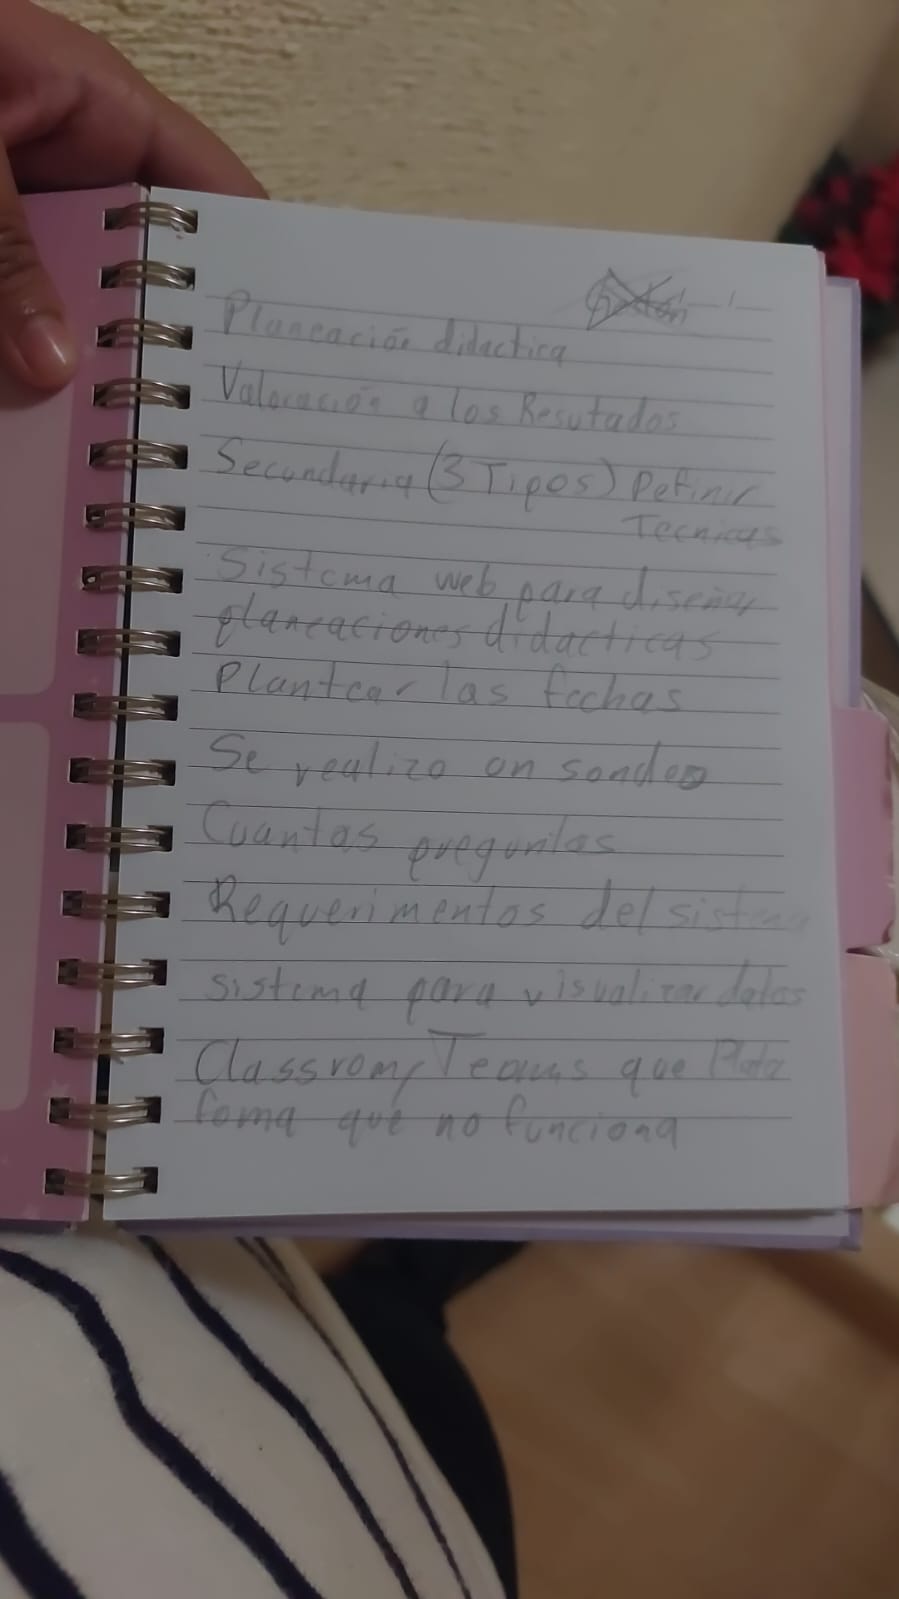 Planeación didactica
Valoración a los Resutados
Secundaria (3 Tipos) Definir
Tecnicas
Sistema web para diseñar
planeaciones didacticas
Plantear las fechas
Se realizo un sondeo
Cuantas preguntas
Requerimentos del sistema
sistema para visualizar datos
Classrom, Teams que Plata
foma que no funciona